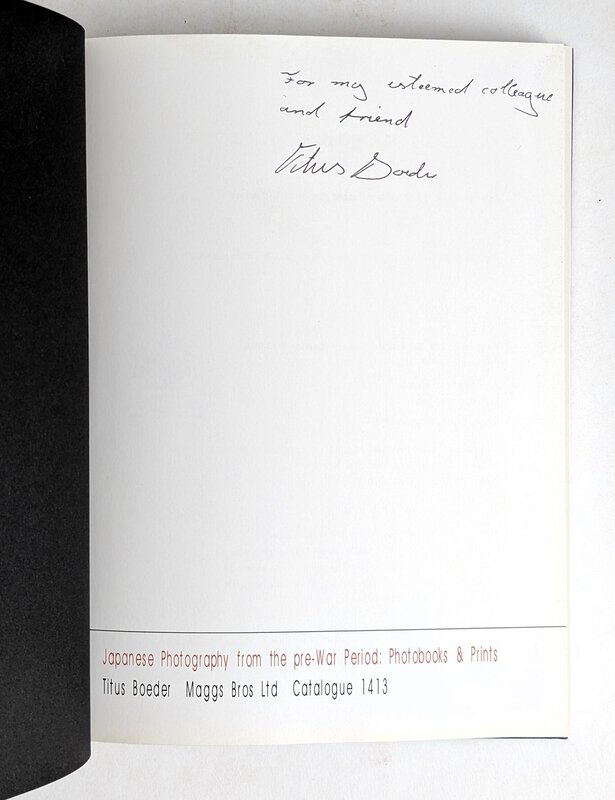 For my esteemed colleague
and friend
Titus Boeder
Japanese Photography from the pre-War Period: Photobooks & Prints
Titus Boeder Maggs Bros Ltd Catalogue 1413